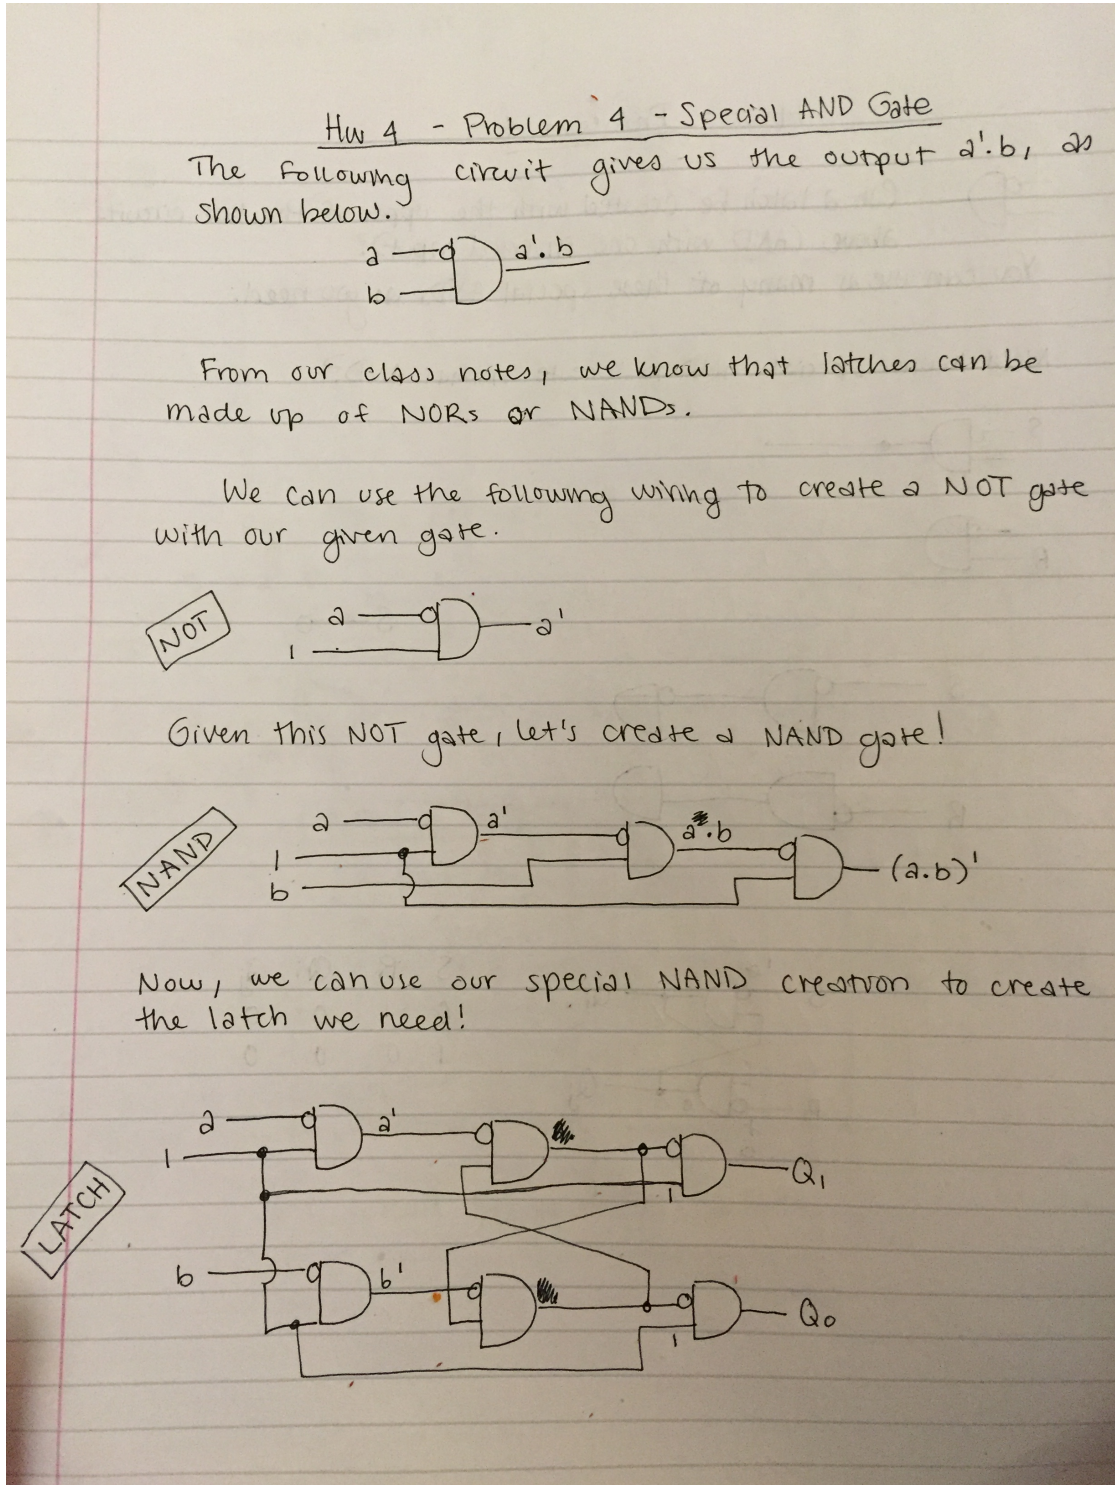 Hw 4 - Problem 4 - Special AND Gate
The following circuit gives us the output a'.b, as
shown below.
a
a'.b
b
From our class notes, we know that latches can be
made up of NORs or NANDs.
We can use the following wiring to create a NOT gate
with our given gate.
NOT
a
a'
1
Given this NOT gate, let's create a NAND gate!
NAND
a
a'
a.b
1
b
(a.b)'
Now, we can use our special NAND creation to create
the latch we need!
LATCH
a
a'
1
Q1
1
b
b'
Q0
1